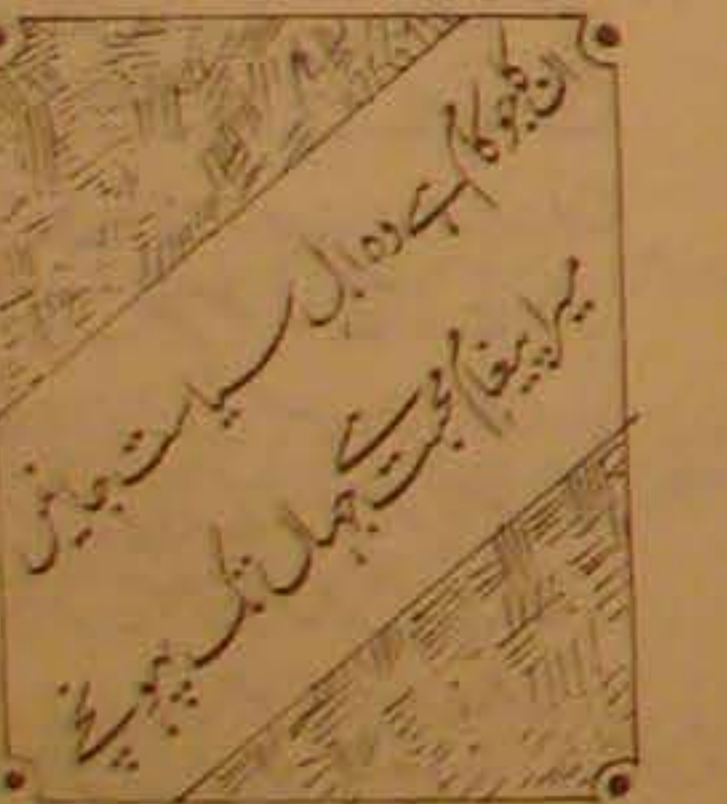 ان کا جو کام ہے وہ اہل سیاست جانیں
میرا پیغام محبت ہے جہاں تک پہونچے